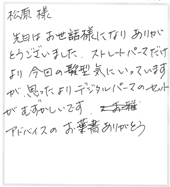 松原 様
先日はお世話様になり ありが
とうございました。ストレートパーマだけ
より 今回の髪型気にいっています
が、思ったよりデジタルパーマのセット
がむずかしいです。
アドバイスの お葉書ありがとう